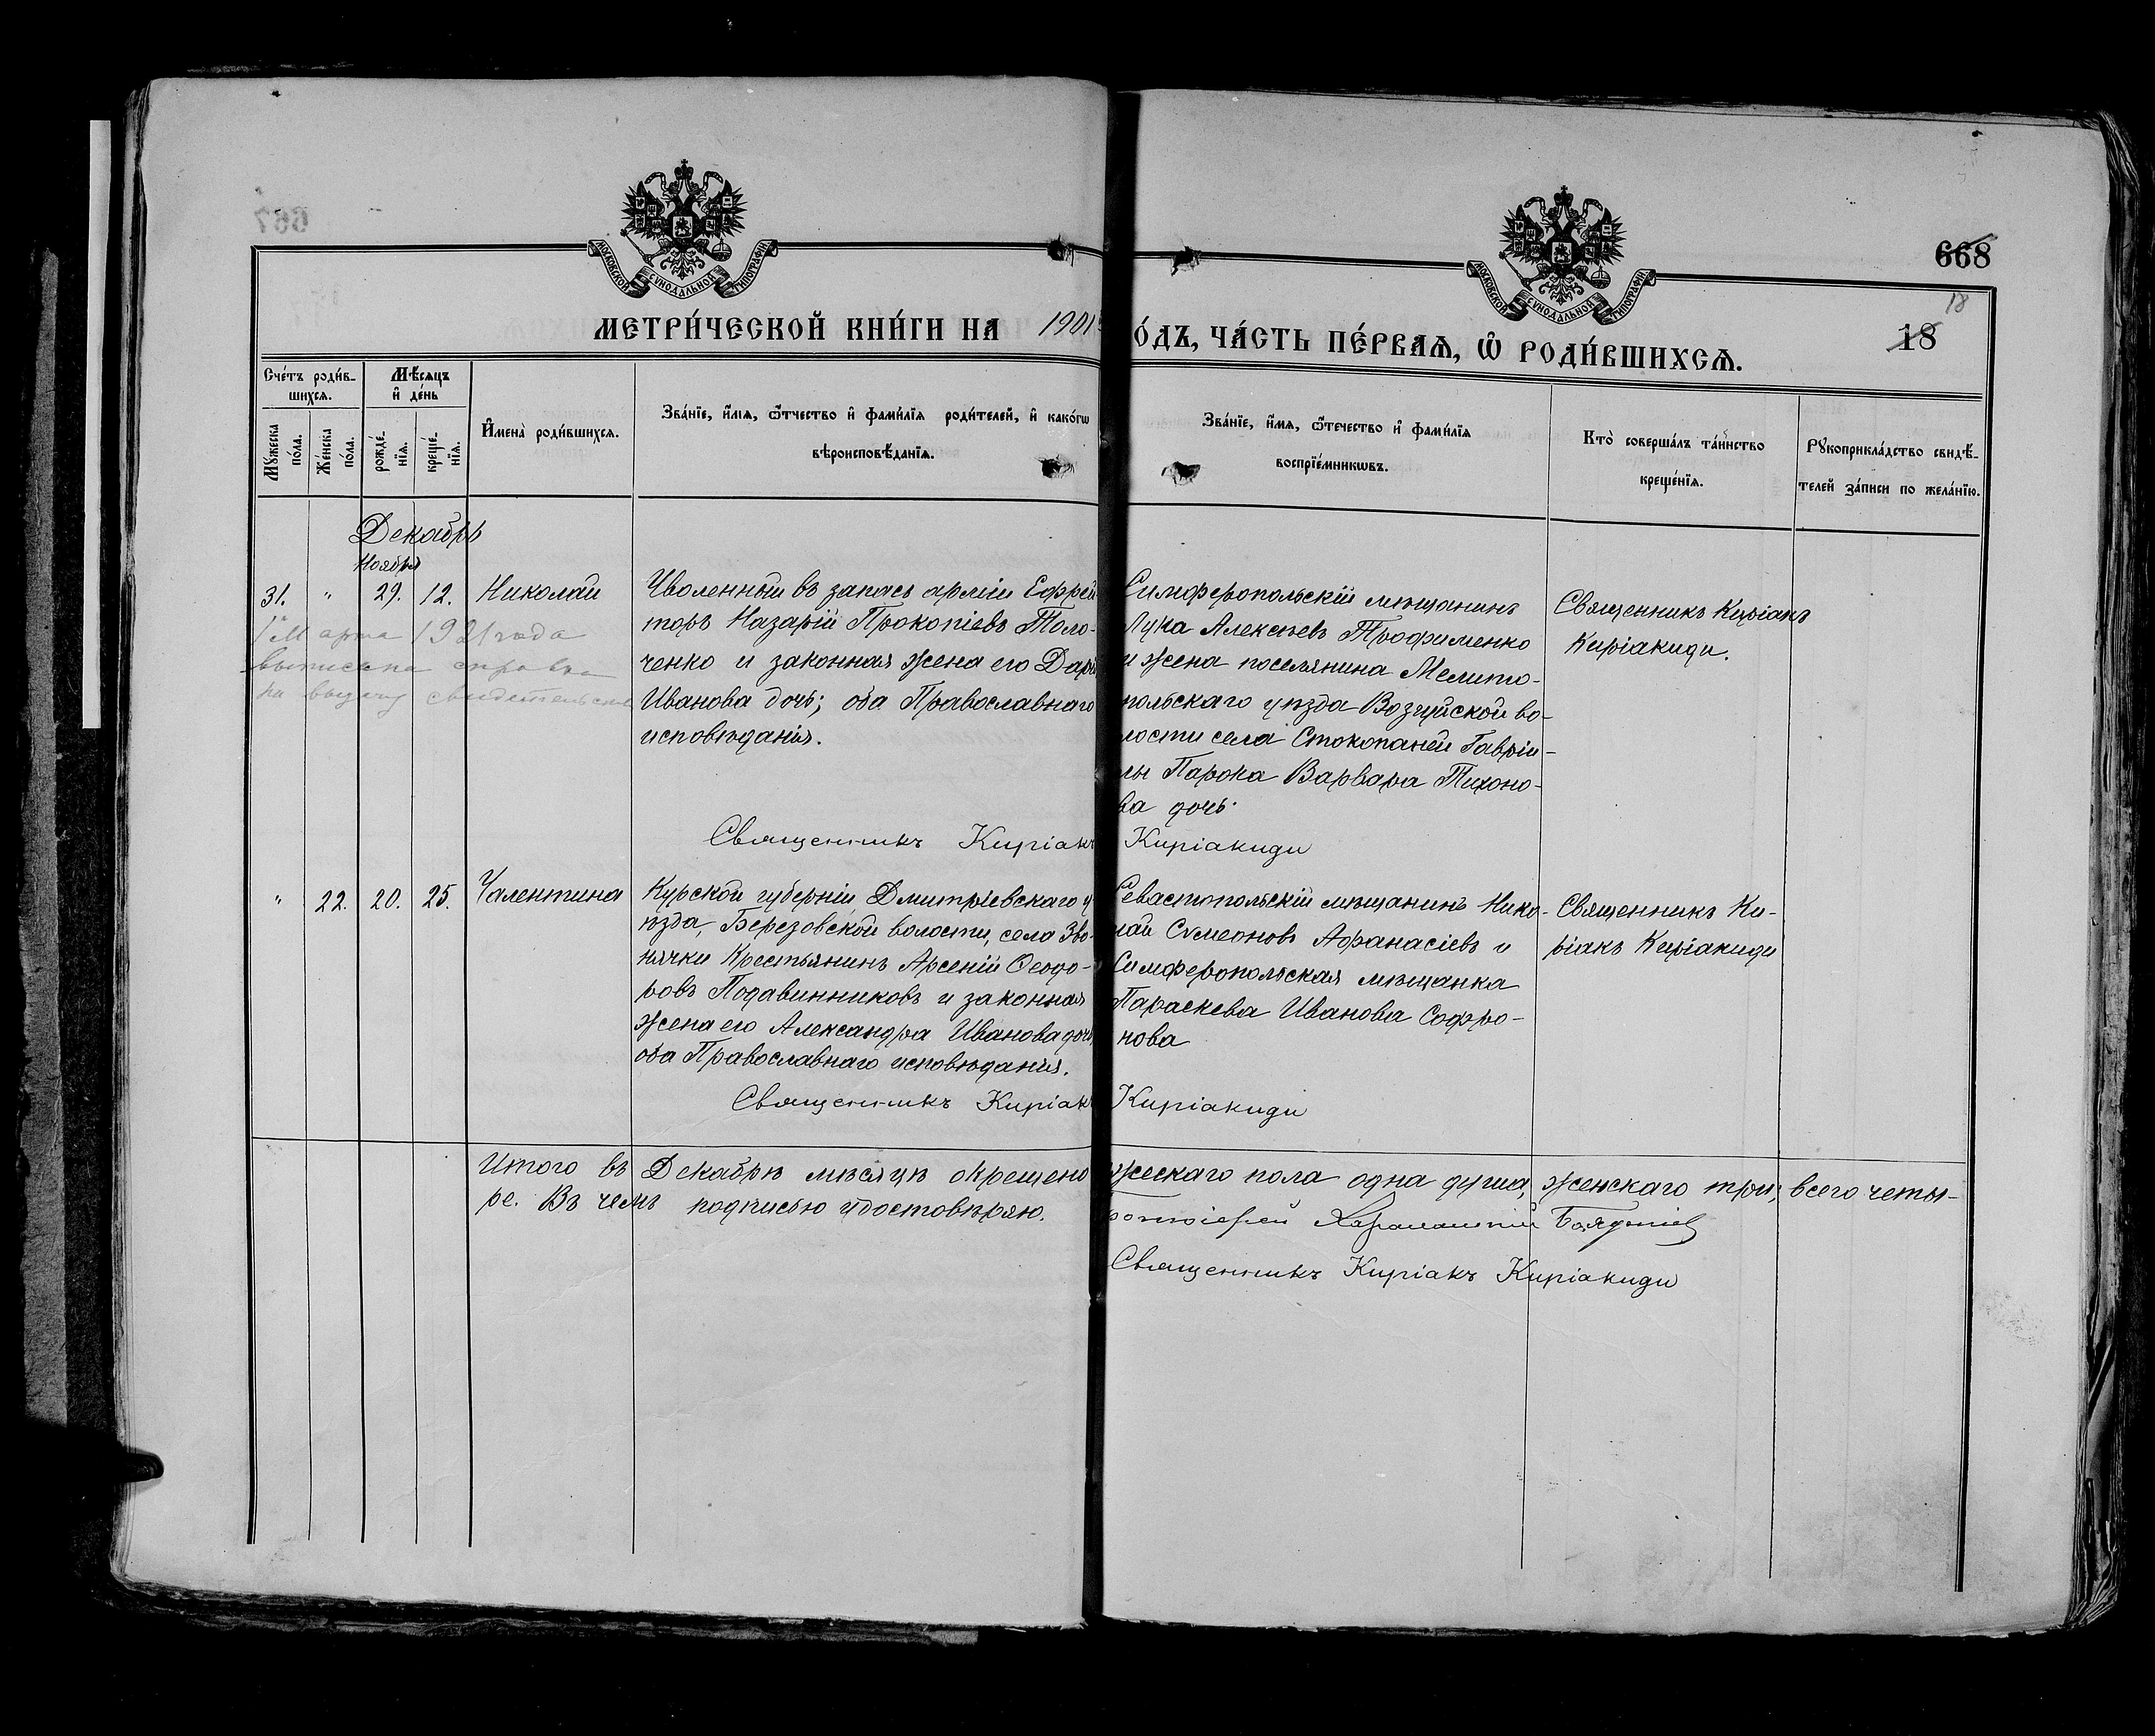 668
18
18
МОСКОВСКОЙ СѴНОДАЛЬНОЙ ТИПОГРАФІИ
МОСКОВСКОЙ СѴНОДАЛЬНОЙ ТИПОГРАФІИ
МЕТРИ́ЧЕСКОЙ КНИ́ГИ НА 1901
О́ДЪ, ЧА́СТЬ ПЕ́РВАѦ, Ѽ РОДИ́ВШИХСѦ.
Сче́тъ роди́в-
шихсѧ.
Мѣ́сѧцъ
и҆ де́нь
Мꙋ́жеска
по́ла.
Же́нска
по́ла.
рожде́-
нїѧ.
креще́-
нїѧ.
И҆мена̀ роди́вшихсѧ.
Зва́нїе, и҆́мѧ, ѻ҆́тчество и҆ фами́лїѧ роди́телей, и҆ како́гѡ
вѣроисповѣ́данїѧ.
Зва́нїе, и҆́мѧ, ѻ҆́течество и҆ фами́лїѧ
воспрїе́мникѡвъ.
Кто̀ соверша́лъ та́инство
креще́нїѧ.
Рꙋкоприкла́дство свидѣ́-
телей за́писи по жела́нїю.
Декабрь
Ноября
31. " 29. 12. Николай
1го Марта 1921 года
выписана справка
на выдачу свидетельства
Уволенный въ запасъ арміи Ефрей
торъ Назарій Прокопіевъ Толо-
ченко и законная жена его Дарі
Иванова дочь; оба Православнаго
исповѣданія.
Симферопольскій мѣщанинъ
Лука Алексѣевъ Трофименко
и жена поселянина Мелито-
польскаго уѣзда Возцуйской во-
лости села Стокопаней Гавріи-
лы Парока Варвара Тихоно-
ва дочь.
Священникъ Киріакъ
Киріакиди.
Священникъ Киріакъ Киріакиди
" 22. 20. 25. Валентина
Курской губерніи Дмитріевскаго у-
ѣзда, Березовской волости, села Зво-
нячки Крестьянинъ Арсеній Ѳеодо-
ровъ Подавинниковъ и законная
жена его Александра Иванова дочь,
оба Православнаго исповѣданія.
Севастопольскій мѣщанинъ Нико-
лай Сѵмеоновъ Аѳанасіевъ и
Симферопольская мѣщанка
Параскева Иванова Софро-
нова
Священникъ Ки-
ріакъ Киріакиди
Священникъ Киріакъ Киріакиди
Итого въ Декабрѣ мѣсяцѣ окрещено жескаго пола одна душа, женскаго три; всего четы-
ре. Въ чемъ подписью удостовѣряю.
Священникъ Киріакъ Киріакиди